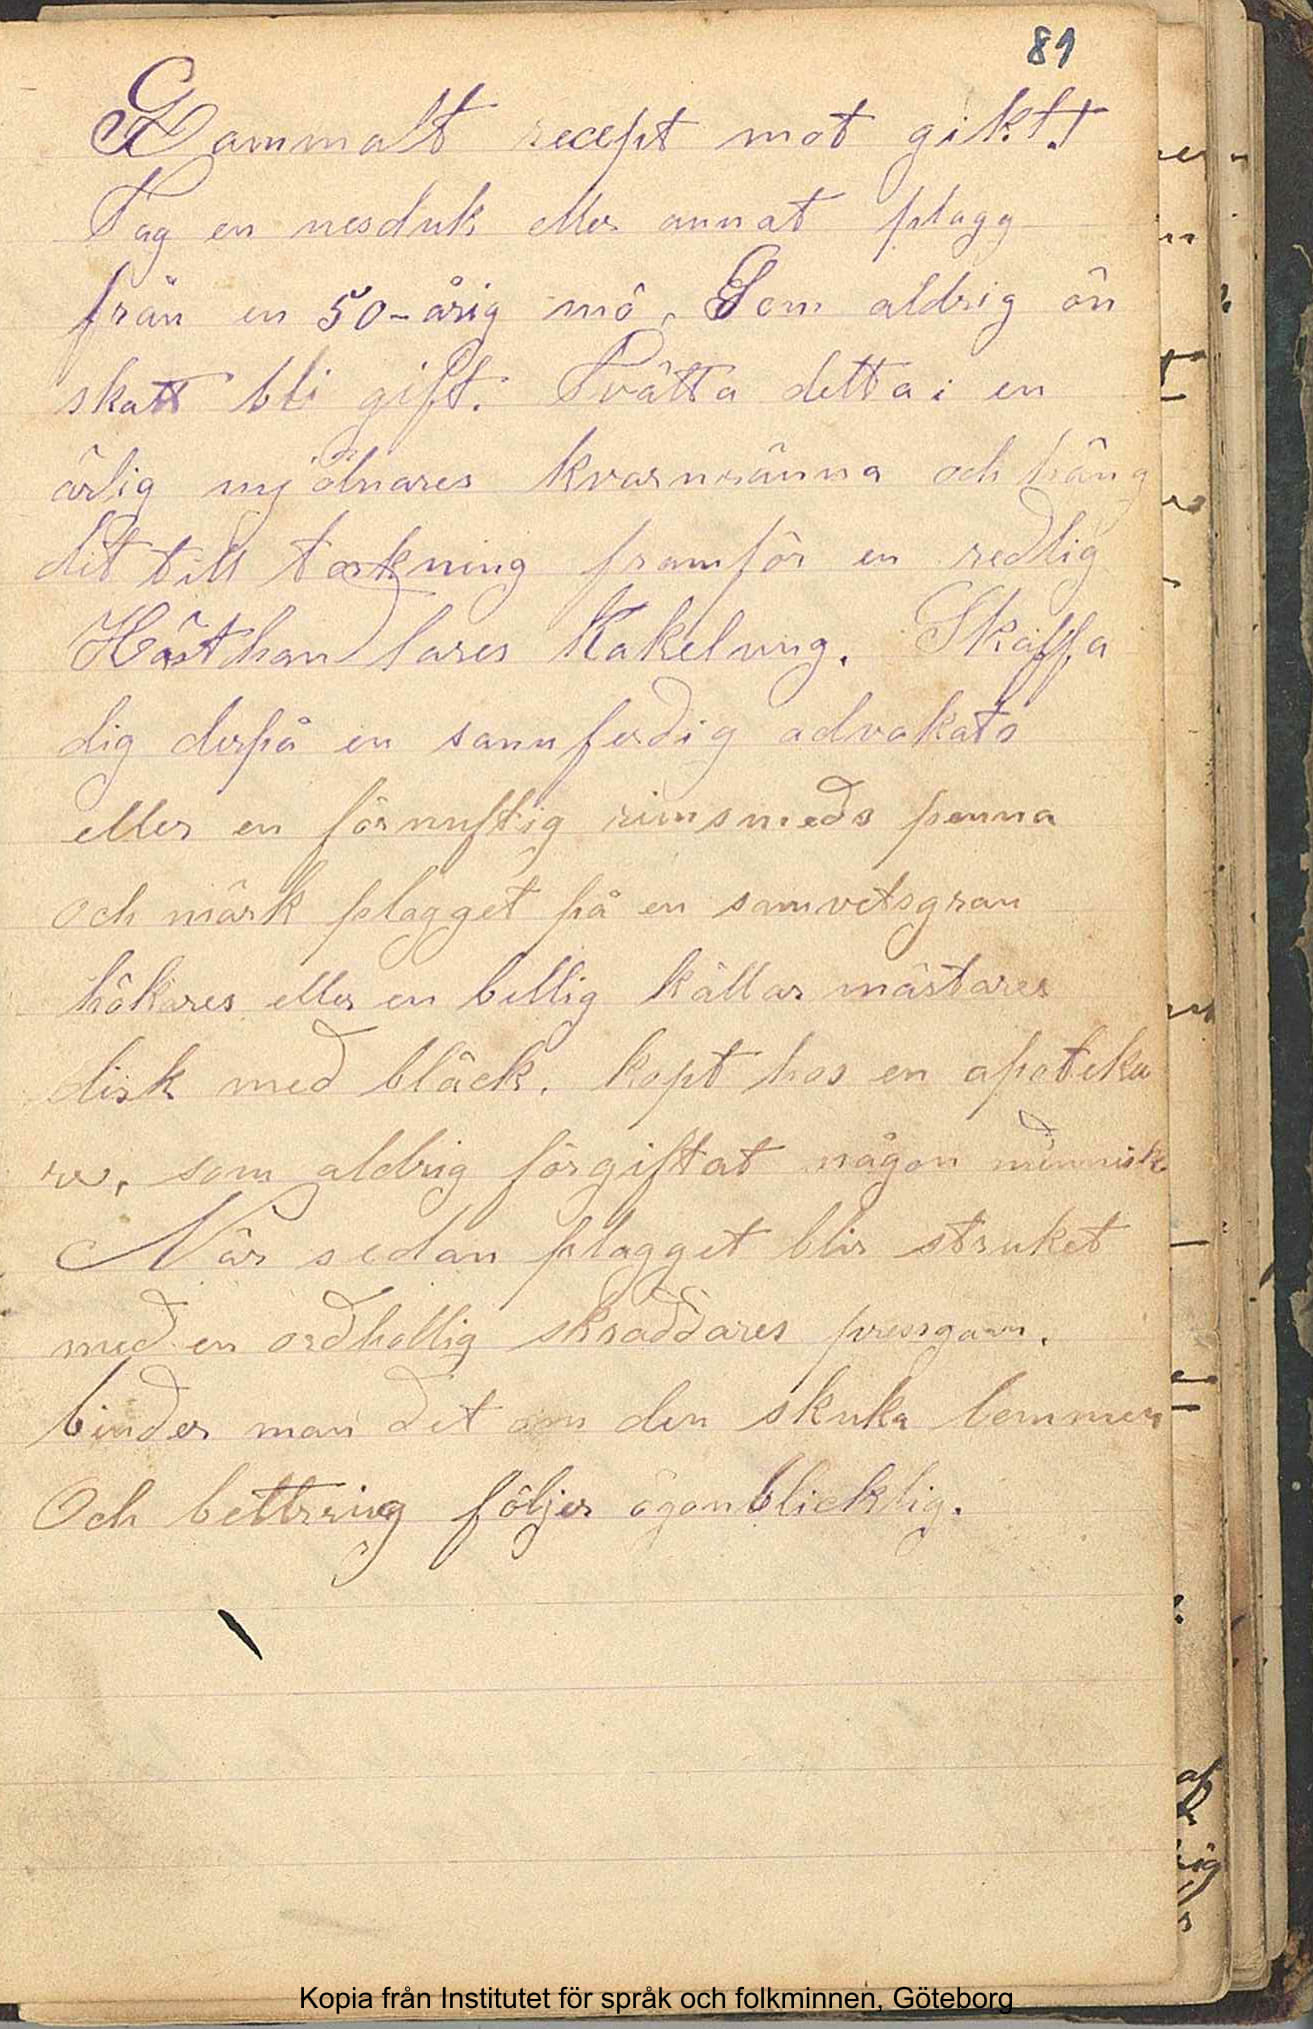 89
Gammalt recept mot gikt!
Tag en nesduk eller annat plagg
från en 50-årig mö, Som aldrig ön
skatt bli gift. Tvätta detta i en
ärlig mjölnares kvarnränna och häng
dit till torkning framför en redlig
Hästhandlares Kakelung. Skaffa
dig derpå en sannferdig advokats
eller en förnuftig rimsmeds penna
och märk plagget på en samvetsgran
hökares eller en billig källarmästares
disk med bläck, kopt hos en apoteka
re, som aldrig förgiftat någon mennisk
När sedan plagget blir struket
med en ordhollig skraddares pressgarn,
binder man det om den skuka lemmen
Och bettring följer ögonblicklig.
Kopia från Institutet för språk och folkminnen, Göteborg